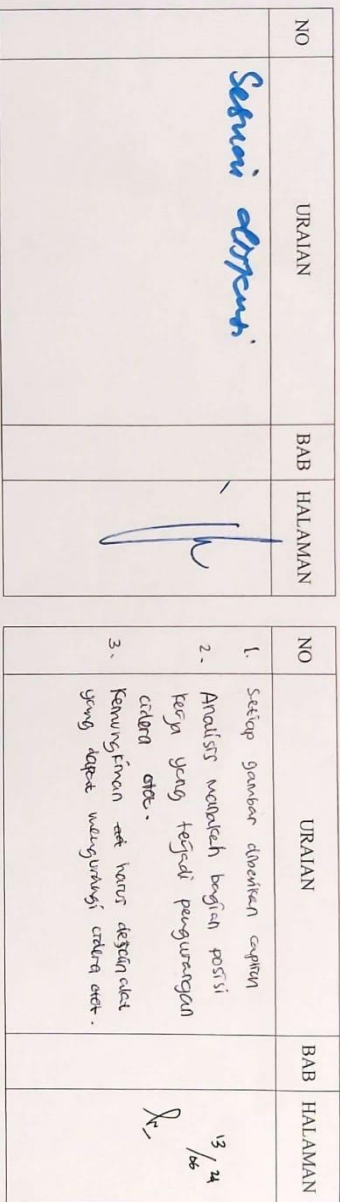 NO URAIAN BAB HALAMAN
Sesuai
NO URAIAN BAB HALAMAN
1. Setiap gambar diberikan caption
2. Analisis manakah bagian posisi
kerja yang terjadi pengurangan
cidera otot.
3. Kemungkinan harus desain alat
yang dapat mengurangi cidera otot.
13/06 24